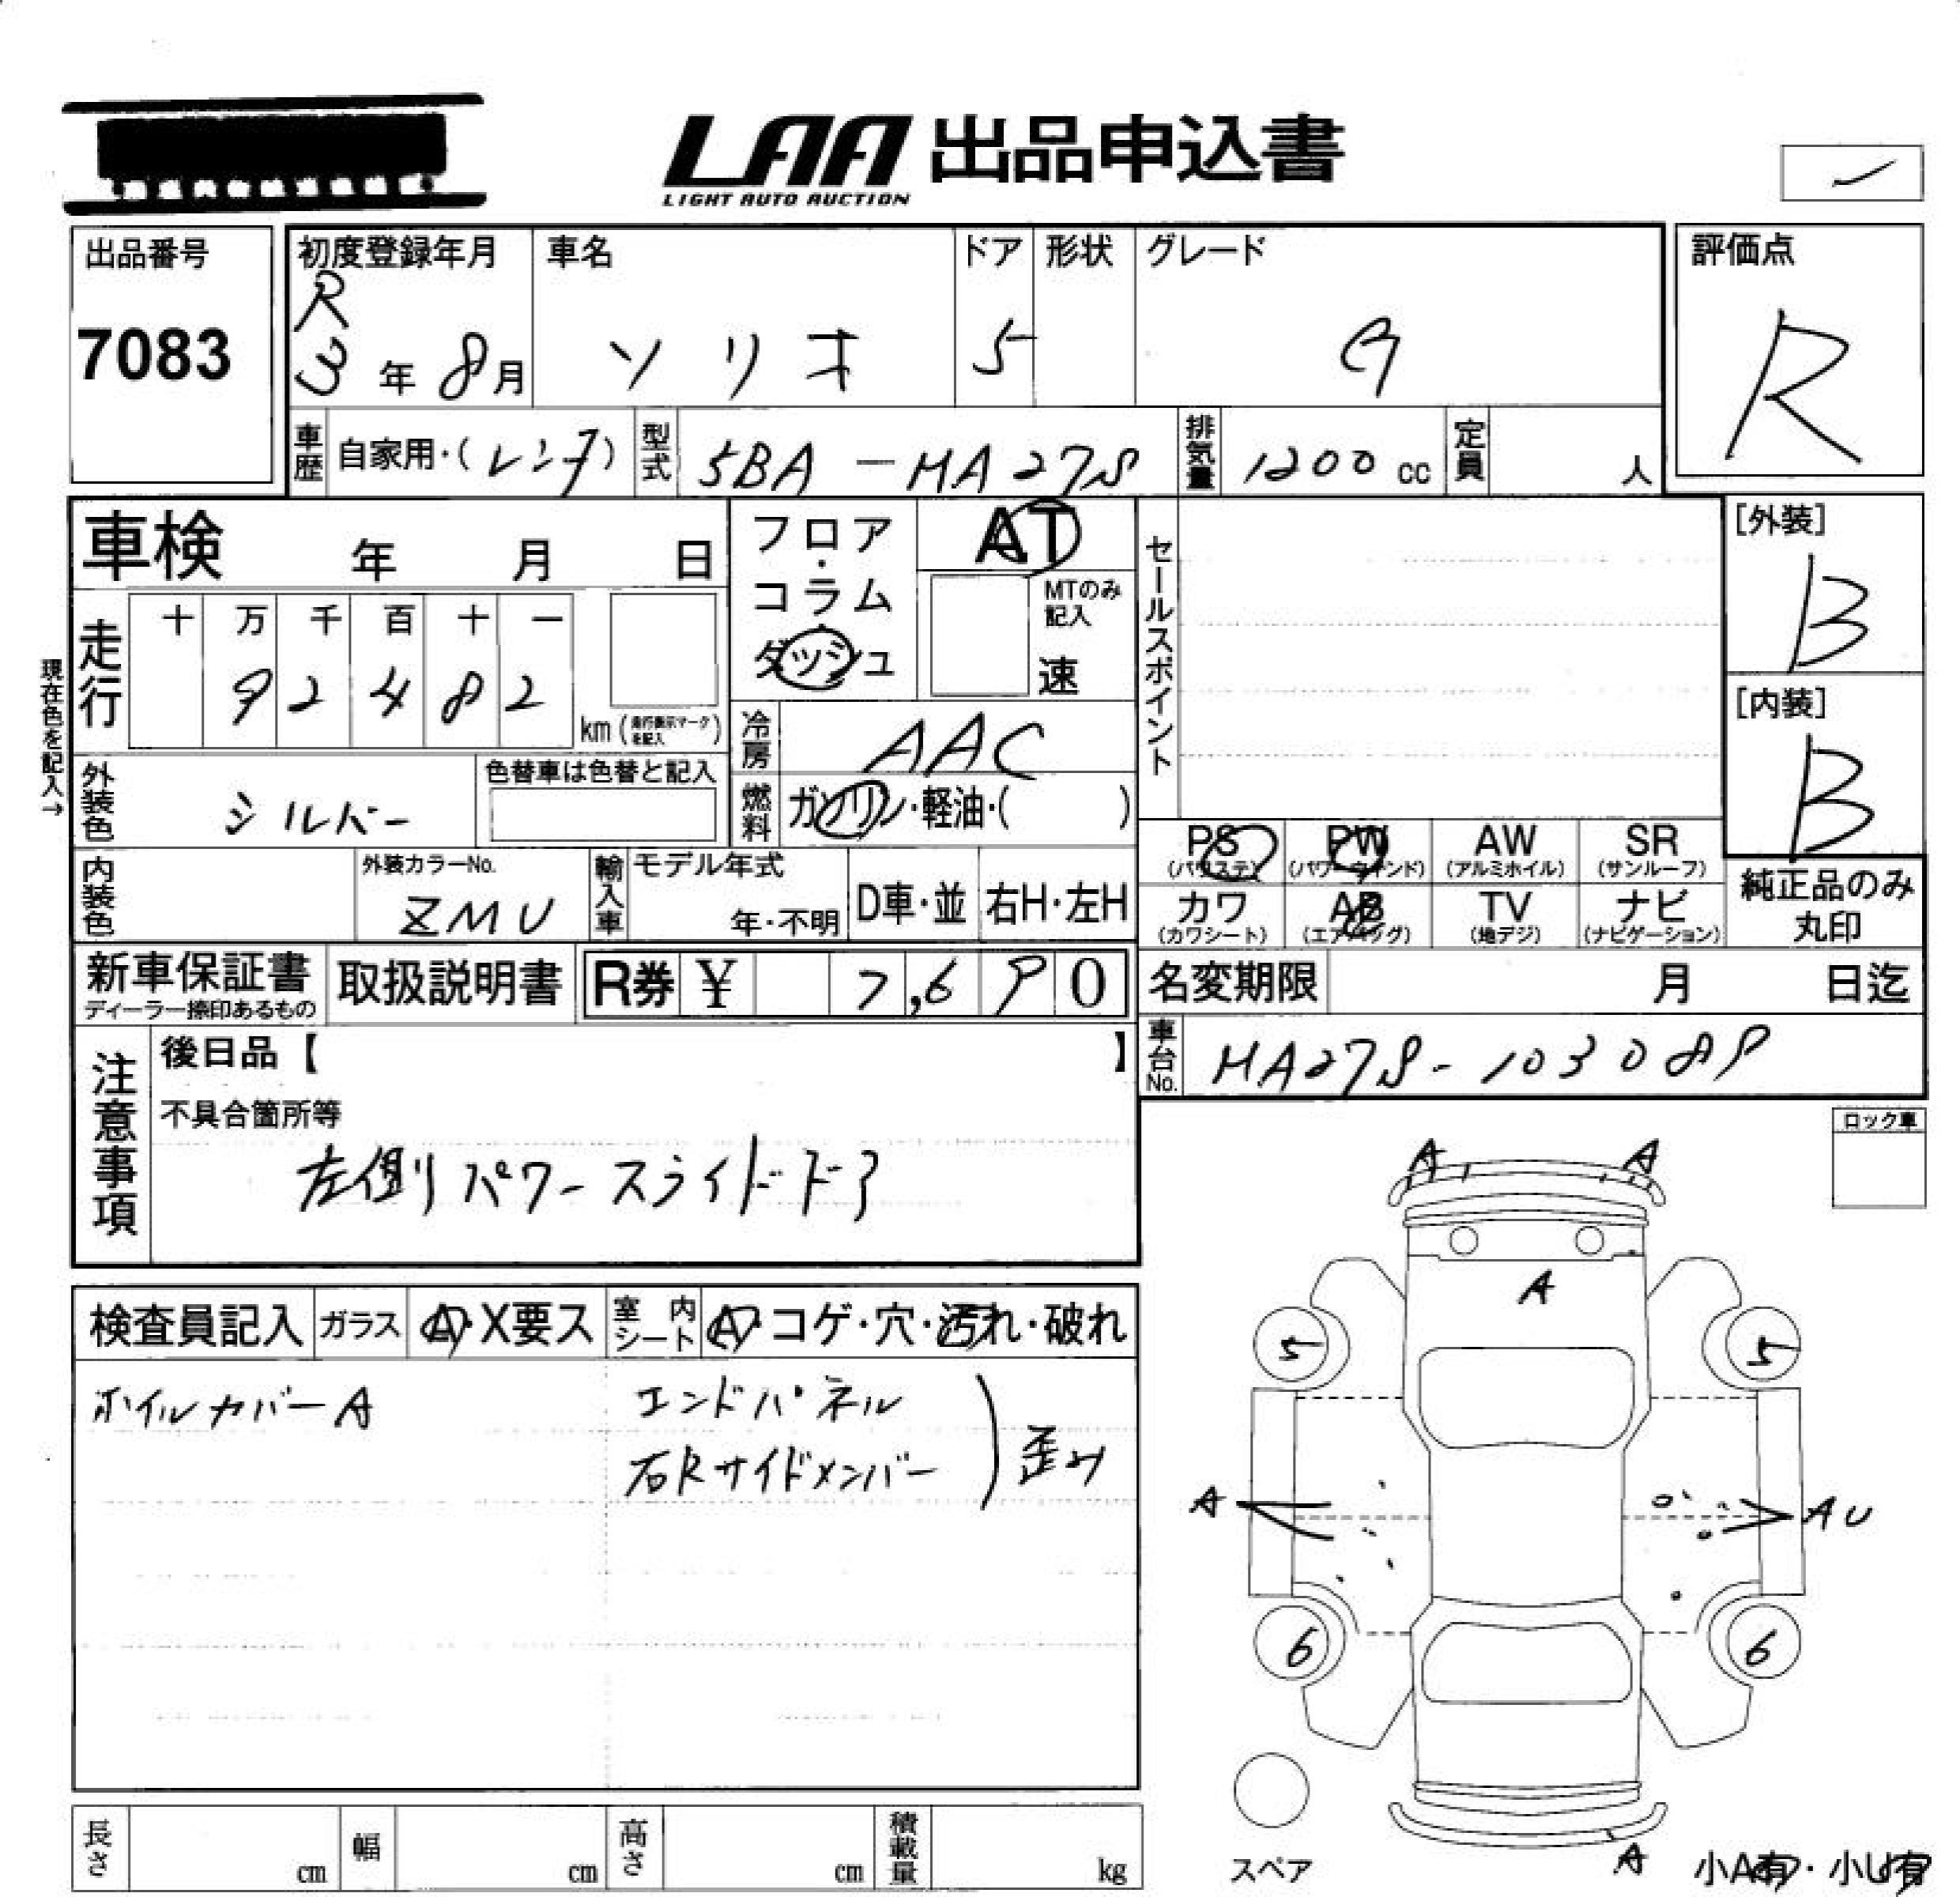 LAA 出品申込書
LIGHT AUTO AUCTION
出品番号
7083
初度登録年月
R
3 年 8 月
車名
ソリオ
ドア
5
形状
グレード
G
評価点
R
車歴 自家用・(レンタ)
型式 5BA-HA27S
排気量 1200 cc
定員 人
車検 年 月 日
フロア・コラム・ダッシュ
AT
MTのみ記入
速
セールスポイント
[外装]
B
[内装]
B
現在色を記入→
走行
十 万 千 百 十 一
9 2 4 8 2
km (走行表示マークを記入)
冷房 AAC
燃料 ガソリン・軽油・( )
外装色 シルバー
色替車は色替と記入
内装色
外装カラーNo.
ZMU
輸入車
モデル年式
年・不明
D車・並
右H・左H
PS (パワステ)
PW (パワーウィンド)
AW (アルミホイル)
SR (サンルーフ)
カワ (カワシート)
AB (エアバッグ)
TV (地デジ)
ナビ (ナビゲーション)
純正品のみ
丸印
新車保証書
ディーラー捺印あるもの
取扱説明書
R券 ¥ 7,690
名変期限 月 日迄
車台No. MA27S-103089
注意事項
後日品【 】
不具合箇所等
左側パワースライドドア
ロック車
検査員記入
ガラス
A・X要ス
室内シート
A・コゲ・穴・汚れ・破れ
ホイルカバーA
エンドパネル
右Rサイドメンバー
歪み
A
A
A
5
5
A
AU
6
6
スペア
A
小A有・小U有
長さ cm
幅 cm
高さ cm
積載量 kg